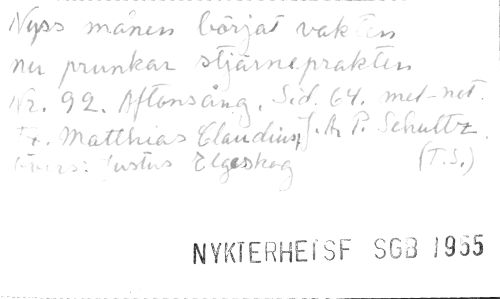 Nyss månen börjat vakten
nu prunkar stjärneprakten
Nr. 92. Aftonsång. Sid. 64. mel-not.
Matthias Claudius, J. A. P. Schultz.
Övers: Justus Elgeskog (T.S.)
NYKTERHETSF SGB 1955